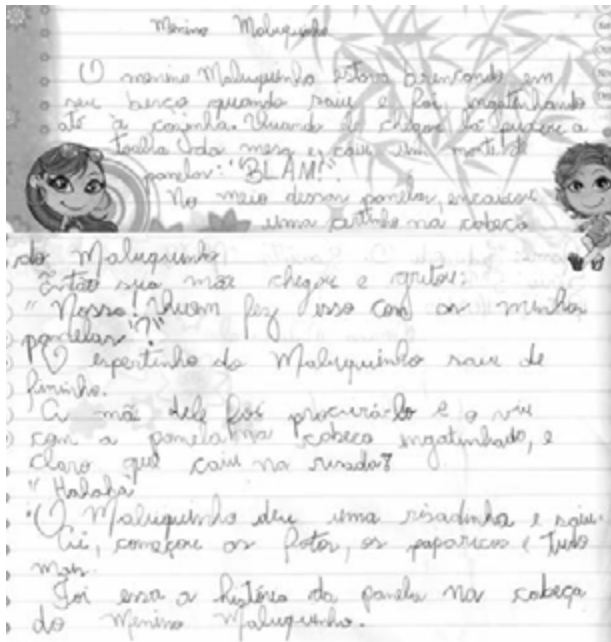 Menino Maluquinho
O menino Maluquinho estava brincando em
seu berço quando saiu e foi engatinhando
até à cozinha. Quando ele chegou lá puxou a
toalha da mesa e caiu um monte de
panelas: "BLAM!".
No meio dessas panelas, encaixou
uma certinho na cabeça
do Maluquinho.
Então sua mãe chegou e gritou:
"Nossa! Quem fez isso com as minhas
panelas"?"
O espertinho do Maluquinho saiu de
fininho.
A mãe dele foi procurá-lo e o viu
com a panela na cabeça engatinhado, e
claro que caiu na risada
"Hahaha"
O Maluquinho deu uma risadinha e saiu.
Aí, começou as fotos, os paparicos e tudo
mais.
Foi essa a história da panela na cabeça
do Menino Maluquinho.